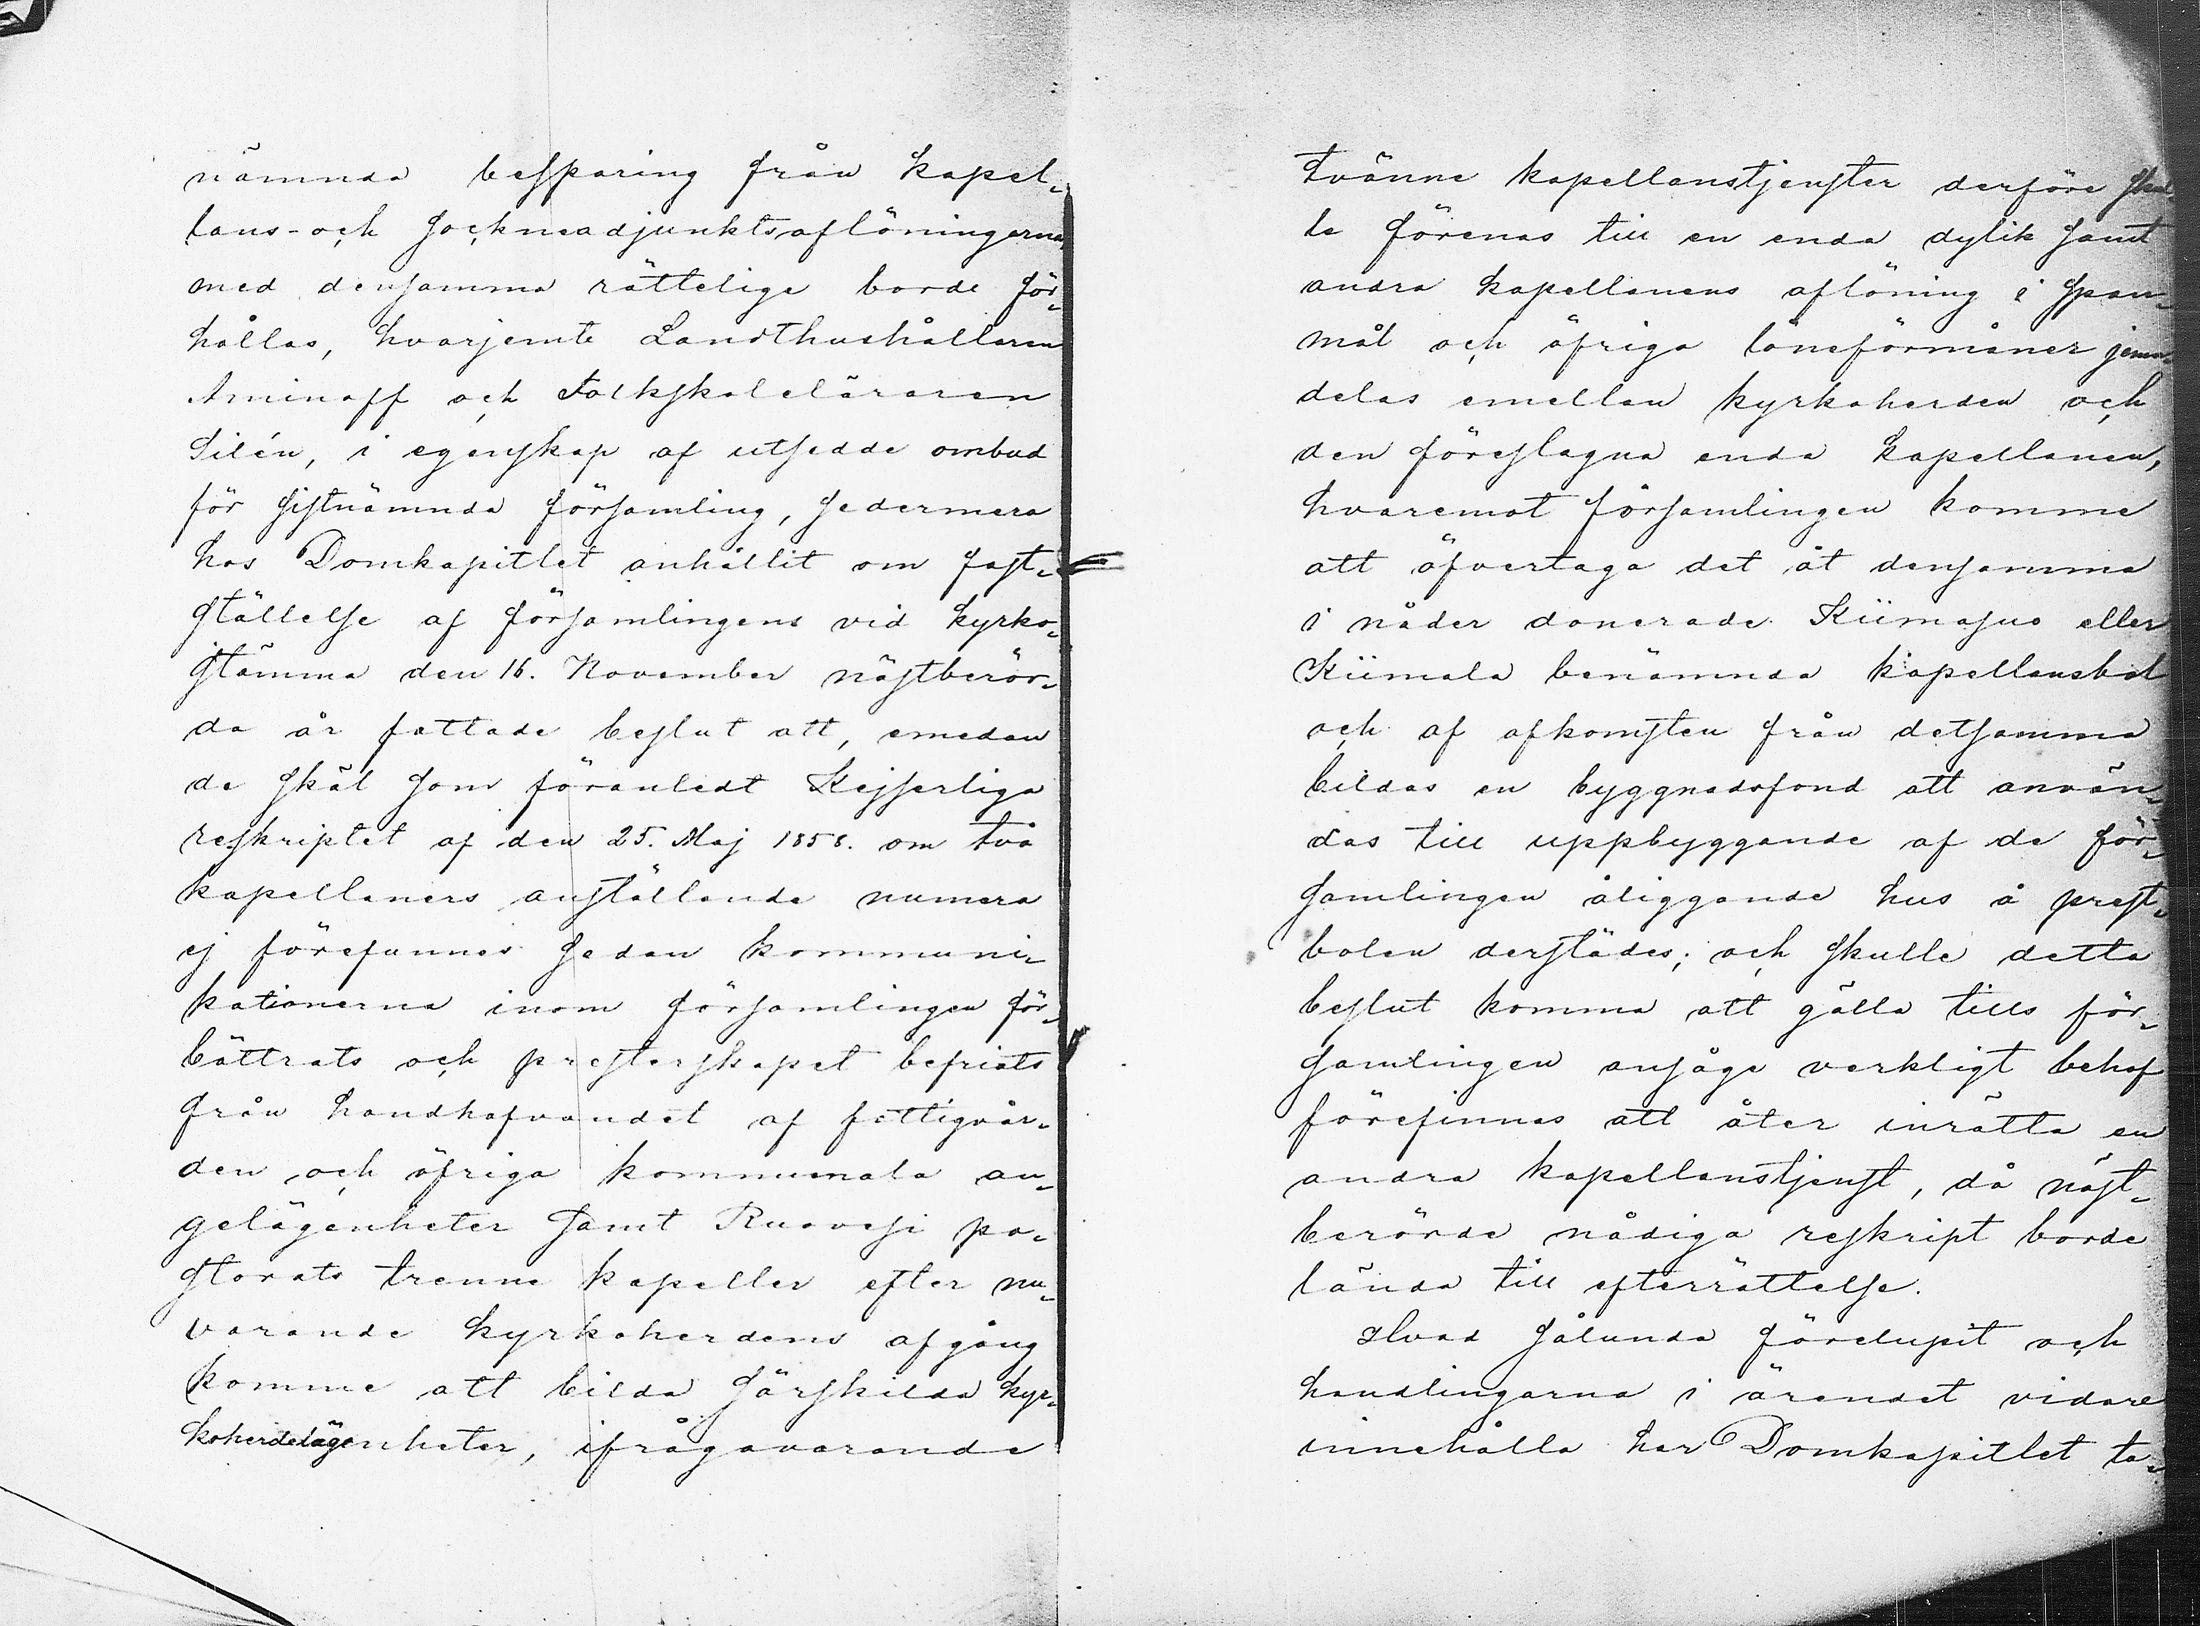 nämnda besparing från kapel-
lans- och sockneadjunktsaflöningarna
med densamma rätteligen borde för-
hållas, hvarjemte Landthushållaren
Aminoff och Folkskoleläraren
Silén, i egenskap af utsedde ombud
för sistnämnda församling, sedermera
hos Domkapitlet anhållit om fast-
ställelse af församlingens vid kyrko-
stämma den 16. November nästberör-
da år fattade beslut att, emedan
de skäl som föranledt Kejserliga
reskriptet af den 25. Maj 1858. om två
kapellaners anställande numera
ej förefunnes sedan kommuni-
kationerna inom församlingen för-
bättrats och presterskapet befriats
från handhafvandet af fattigvår-
den och öfriga kommunala an-
gelägenheter samt Ruovesi pa-
storats trenne kapeller efter nu-
varande kyrkoherdens afgång
komme att bilda särskilda kyr-
koherdelägenheter, ifrågavarande
tvänne kapellanstjenster derföre skul-
le förenas till en enda dylik samt
andra kapellanens aflöning i span-
mål och öfriga löneförmåner jemn-
delas emellan kyrkoherden och
den föreslagna enda kapellanen,
hvaremot församlingen komme
att öfvertaga det åt densamma
i nåder donerade Kiimasuo eller
Kiimala benämnda kapellansbol
och af afkomsten från detsamma
bildas en byggnadsfond att använ-
das till uppbyggande af de för-
samlingen åliggande hus å prest-
bolen derstädes; och skulle detta
beslut komma att gälla tills för-
samlingen ansåge verkligt behof
förefinnas att åter inrätta en
andra kapellanstjenst, då näst-
berörde nådiga reskript borde
lända till efterrättelse.
Hvad sålunda förelupit och
handlingarna i ärendet vidare
innehålla har Domkapitlet ta-